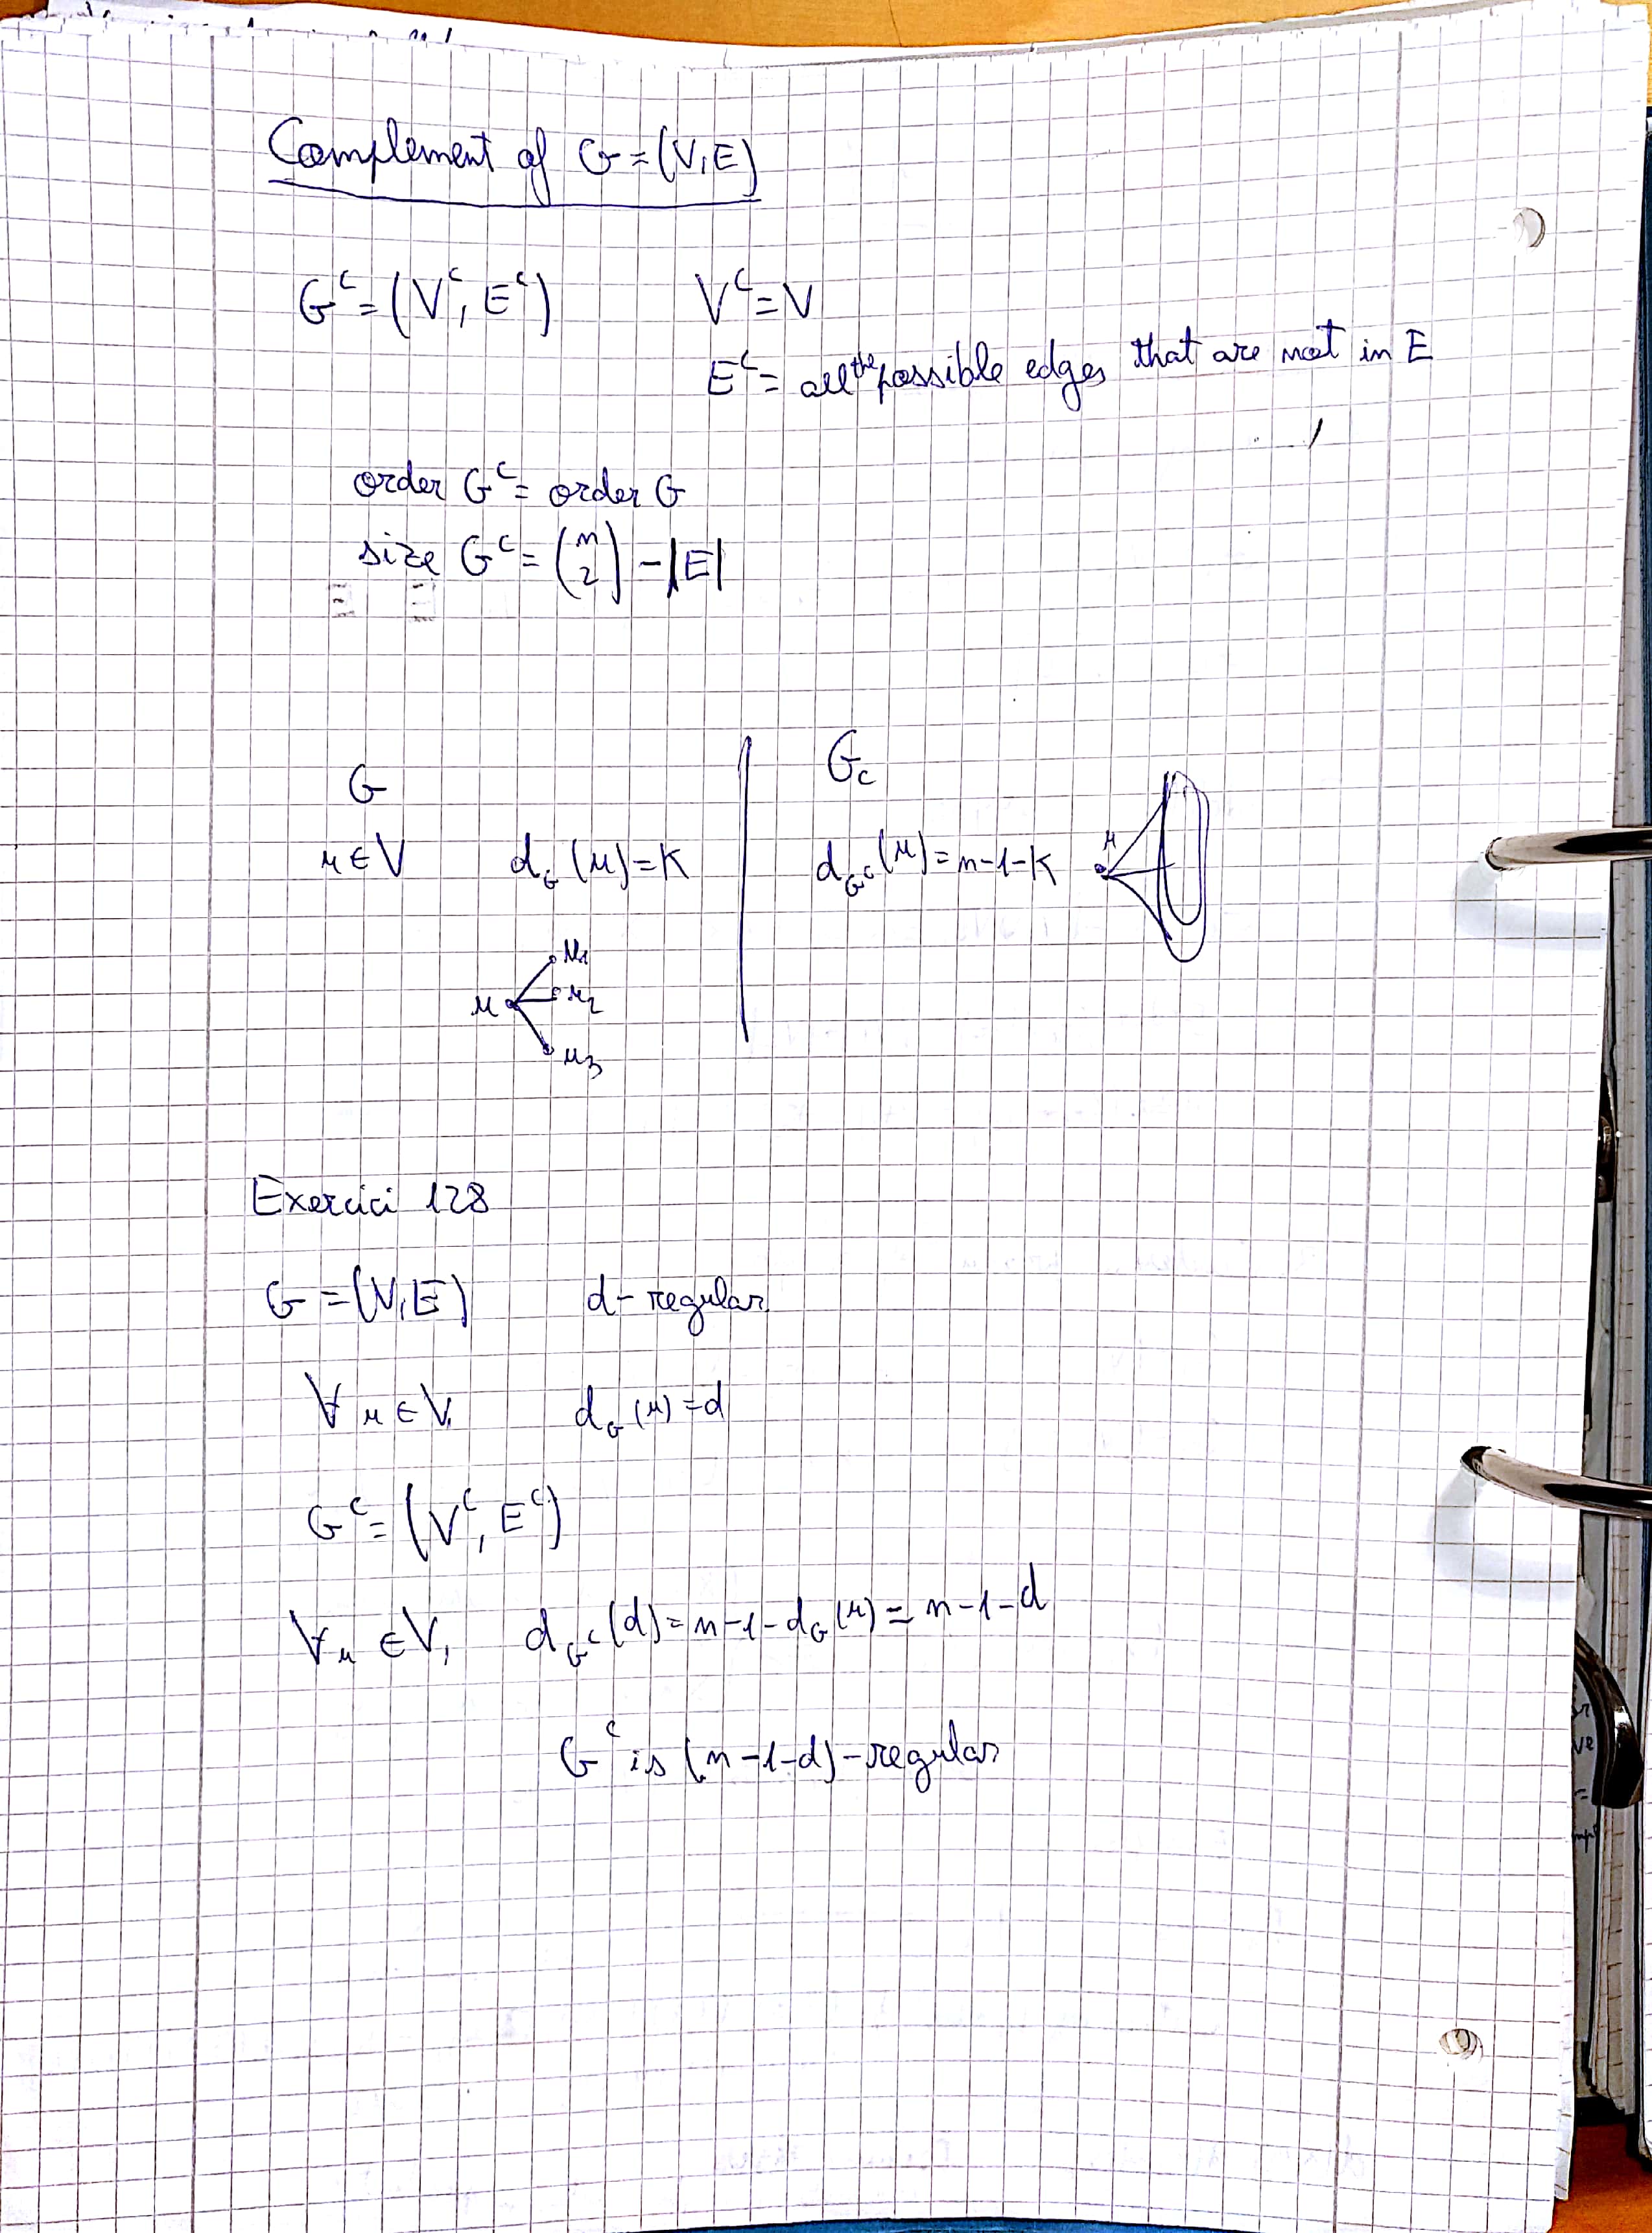 Complement of G=(V,E)
G^c=(V^c, E^c) V^c=V
E^c= all the possible edges that are not in E
order G^c= order G
size G^c= (n 2) - |E|
G
u ∈ V d_G(u)=K
u u1 u2 u3
G_c
d_G^c(u)=n-1-K u
Exercici 128
G=(V,E) d-regular
∀ u ∈ V, d_G(u)=d
G^c=(V^c, E^c)
∀ u ∈ V, d_G^c(d)=n-1-d_G(u)=n-1-d
G^c is (n-1-d)-regular